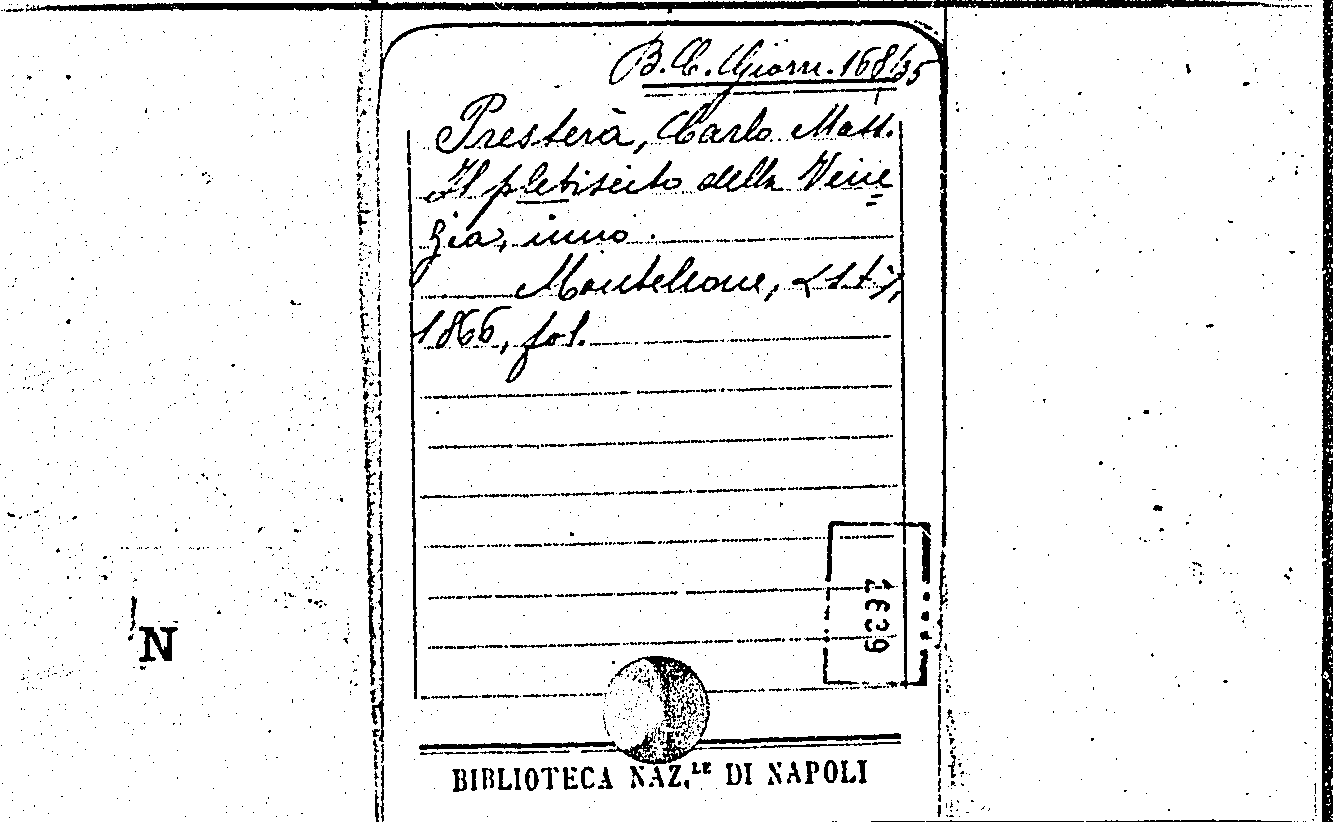 B. C. Giorn. 168/35
Presterà, Carlo Matt.
Il plebiscito della Vene
zia, inno.
Monteleone,
1866, fol.
N
BIBLIOTECA NAZ.LE DI NAPOLI